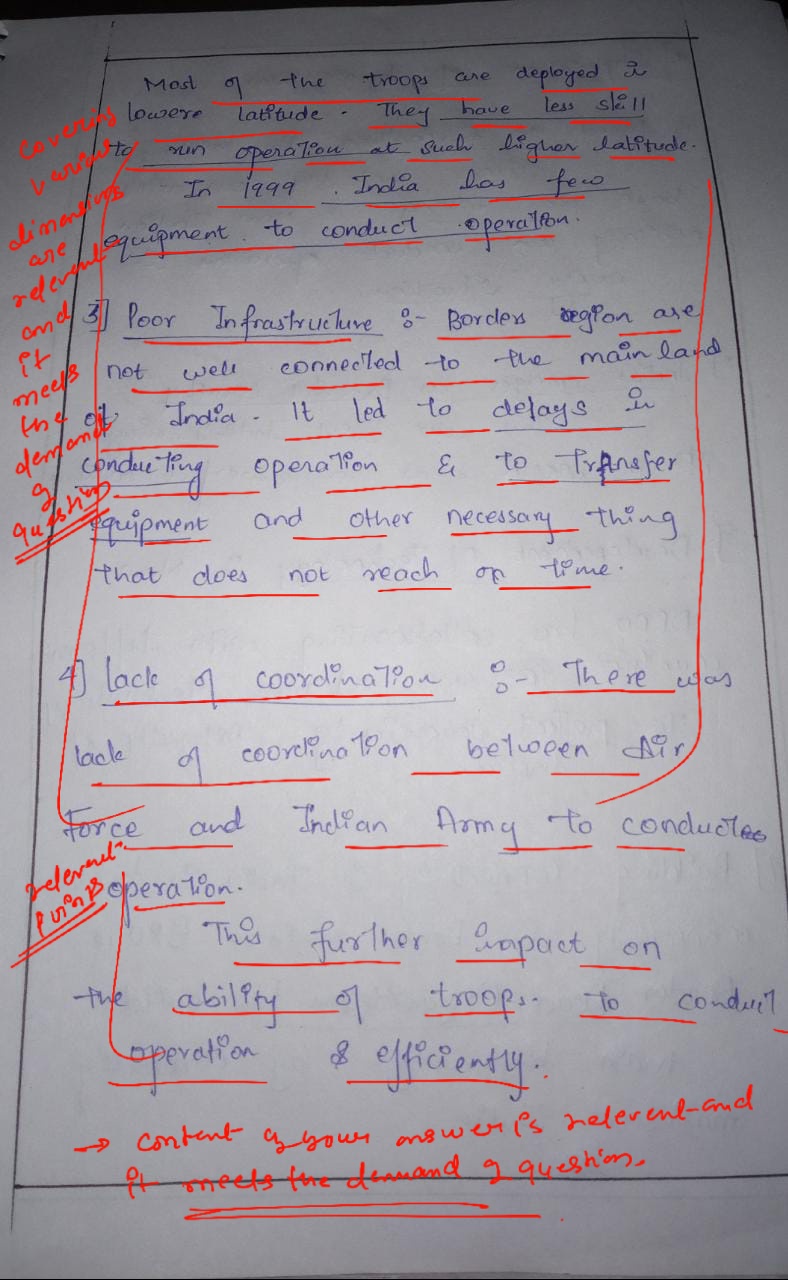 Most of the troops are deployed in
lowere latitude. They have less skill
to run operation at such higher latitude.
In 1999, India has few
equipment to conduct operation.
covering
various
dimensions
are
relevent
and
it
meets
the
demand
of
question
3] Poor Infrastructure :- Borders region are
not well connected to the main land
of India. It led to delays in
conducting operation & to Transfer
equipment and other necessary thing
that does not reach on time.
4] lack of coordination :- There was
lack of coordination between Air
Force and Indian Army to conduct
operation.
relevent
points
This further impact on
the ability of troops. to conduct
operation & efficiently.
→ content of your answer is relevent and
it meets the demand of question.